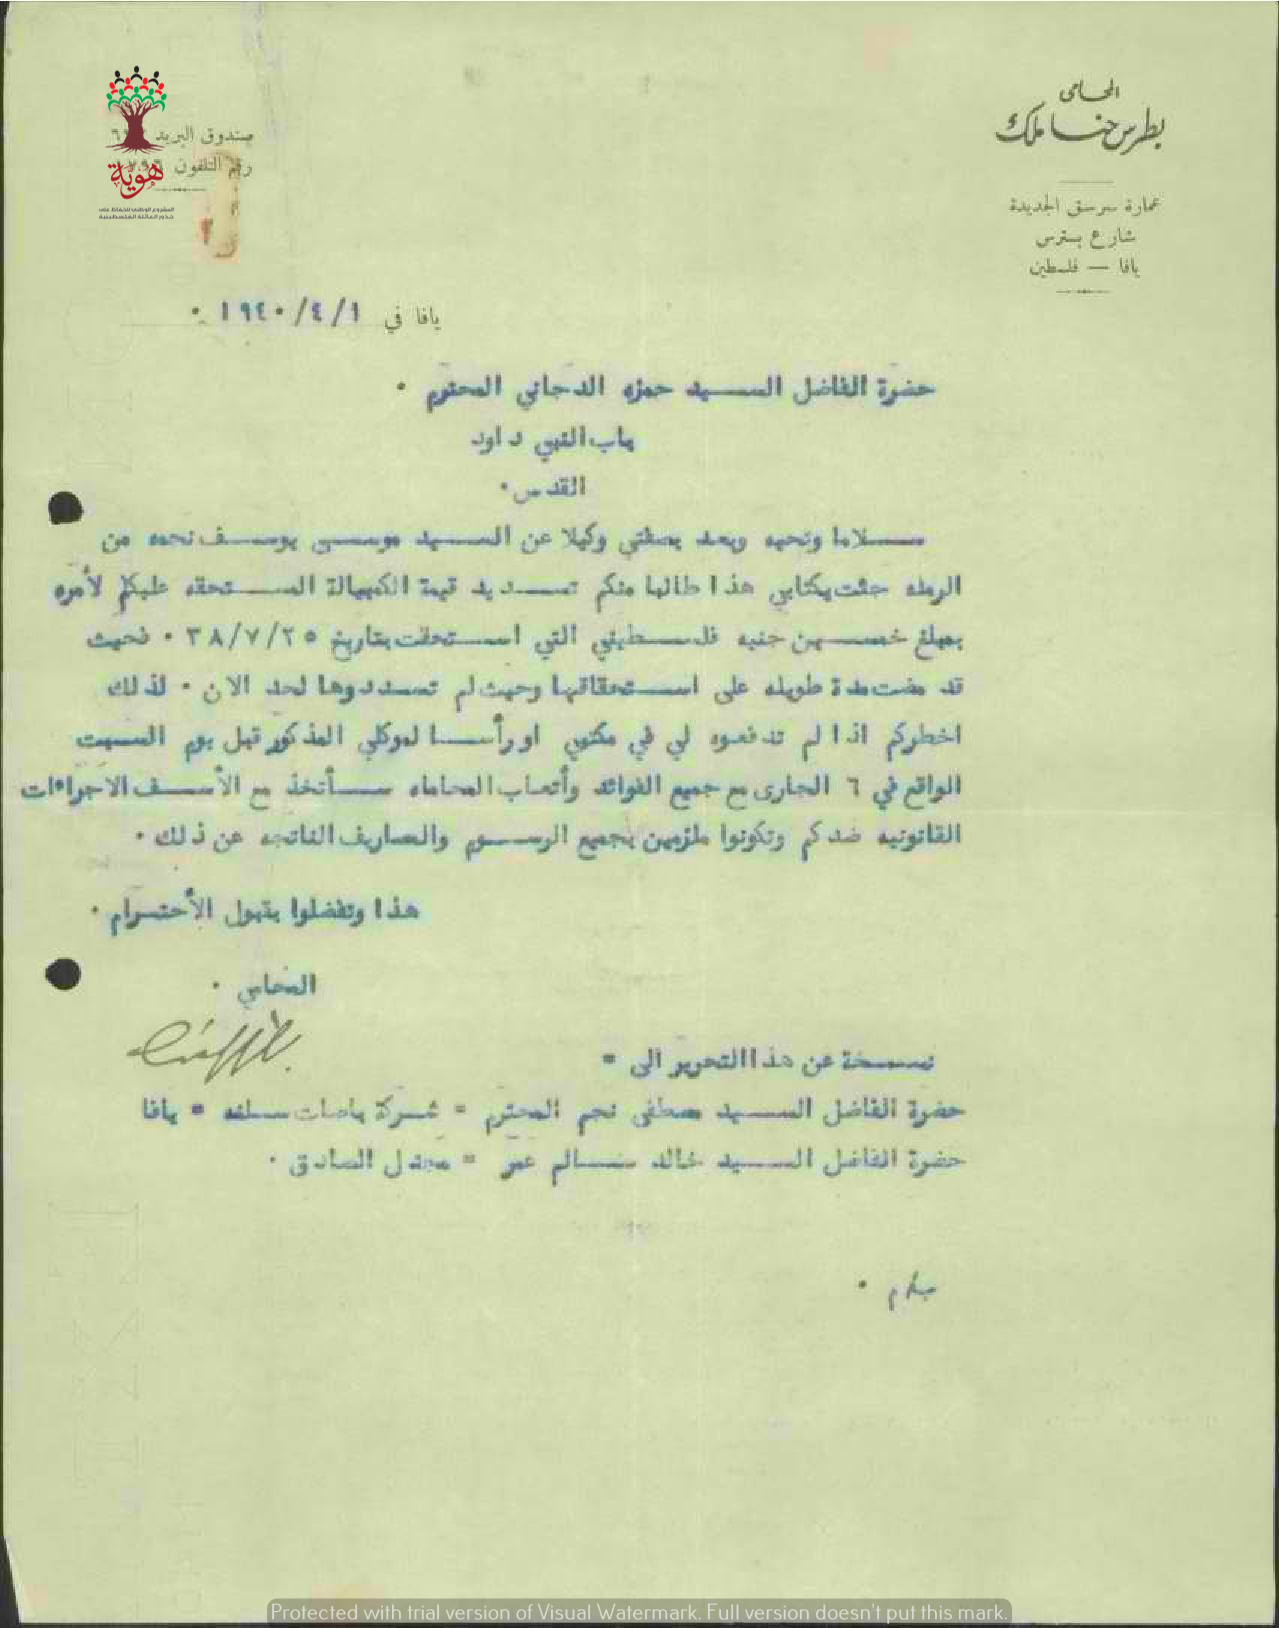 المحامى
بطرس حنا ملك
عمارة سرسق الجديدة
شارع بسترس
يافا — فلسطين
صندوق البريد
رقم التلفون
هوية
المشروع الوطني للحفاظ على
جذور العائلة الفلسطينية
يافا في ١٩٤٠/٤/١ ·
حضرة الفاضل السيد حمزه الدجاني المحترم ·
باب النبي داود
القدس ·
سلاما وتحيه وبعد بصفتي وكيلا عن السيد موسى يوسف نجمه من
الرمله جئت بكتابي هذا طالبا منكم تسديد قيمة الكمبيالة المستحقه عليكم لأمره
بمبلغ خمسين جنيه فلسطيني التي استحقت بتاريخ ٣٨/٧/٢٥ · فحيث
قد مضت مدة طويله على استحقاقها وحيث لم تسددوها لحد الان · لذلك
اخطركم اذا لم تدفعوه لي في مكتبي او رأسا لموكلي المذكور قبل يوم السبت
الواقع في ٦ الجارى مع جميع الفوائد وأتعاب المحاماه سأتخذ مع الأسف الاجراءات
القانونيه ضدكم وتكونوا ملزمين بجميع الرسوم والمصاريف الناتجه عن ذلك ·
هذا وتفضلوا بقبول الأحترام ·
المحامي ·
نسخة عن هذا التحرير الى =
حضرة الفاضل السيد مصطفى نجم المحترم = شركة باصات سلمه = يافا
حضرة الفاضل السيد خالد سالم عمر = مجدل الصادق ·
Protected with trial version of Visual Watermark. Full version doesn't put this mark.